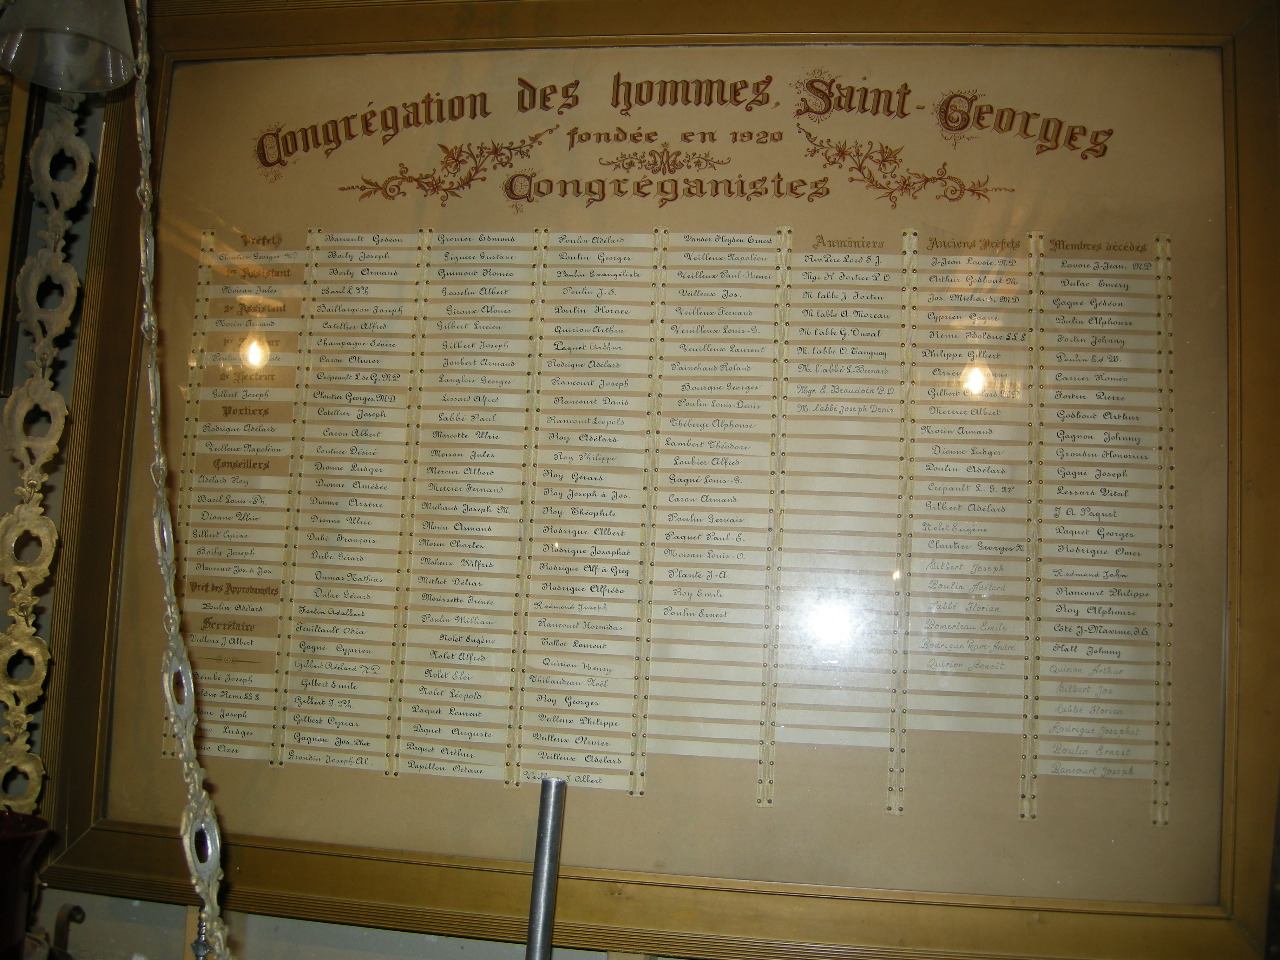 Congrégation des hommes, Saint-Georges
fondée en 1920
Congréganistes
Préfet
Cloutier Georges
1er Assistant
Moisan Jules
2e Assistant
Morin Armand
Gilbert Joseph
Portiers
Rodrigue Adélard
Veilleux Napoléon
Conseillers
Adélard Roy
Bazil Louis-Ph.
Dionne Ulric
Gilbert
Boily Joseph
Rancourt Jos. à Jos.
Préf. des Approbanistes
Poulin Adélard
Secrétaire
J. Albert
Joseph
Remi
Joseph
Ludger
Barriault Gédéon
Boily Joseph
Boily Armand
Bazil L. Ph.
Baillargeon Joseph
Catellier Alfred
Champagne Désiré
Caron Olivier
Crépeault L. de G. M.D.
Cloutier Georges, M.D
Catellier Joseph
Caron Albert
Couture Désiré
Dionne Ludger
Dionne Amédée
Dionne Arsène
Dionne Ulric
Dubé François
Dubé Gérard
Dumas Mathias
Dulac Gérard
Fortin Adalbert
Feuiltault Odia
Gagné Cyprien
Gilbert Adélard N.P.
Gilbert Emile
Gilbert J. Ph.
Gilbert Cyprien
Gagnon Jos. Phil
Grondin Joseph Al.
Grenier Edmond
Giguère Gustave
Guimont Roméo
Gosselin Albert
Giroux Alonzo
Gilbert Lucien
Gilbert Joseph
Joubert Armand
Langlois Georges
Lessard Alfred
Labbé Paul
Marcotte Ulric
Moisan Jules
Mercier Albert
Mercier Fernand
Michaud Joseph M.
Morin Armand
Morin Charles
Maheux Wilfrid
Méthot Délias
Morissette Irénée
Poulin William
Nolet Eugène
Nolet Alfred
Nolet Eloi
Nolet Léopold
Paquet Laurent
Paquet Auguste
Paquet Arthur
Papillon Octave
Poulin Adélard
Poulin Georges
Poulin Evangéliste
Poulin J.-E.
Poulin Horace
Quirion Arthur
Paquet Arthur
Rodrigue Adélard
Rancourt Joseph
Rancourt David
Rancourt Léopold
Roy Adélard
Roy Philippe
Roy Gérard
Roy Joseph à Jos.
Roy Théophile
Rodrigue Albert
Rodrigue Josaphat
Rodrigue Alf. à Grég
Rodrigue Alfrédo
Redmond Joseph
Rancourt Hormidas
Talbot Laurent
Quirion Henry
Thibaudeau Noël
Roy Georges
Veilleux Philippe
Veilleux Olivier
Veilleux Adélard
Albert
Vander Heyden Ernest
Veilleux Napoléon
Veilleux Paul-Henri
Veilleux Jos.
Veilleux Fernand
Veilleux Louis-G.
Veilleux Laurent
Painchaud Roland
Bourque Georges
Poulin Louis-Denis
Théberge Alphonse
Lambert Théodore
Loubier Alfred
Gagné Louis-G.
Caron Armand
Poulin Gervais
Paquet Paul-E.
Moisan Louis-O.
Plante J-A.
Roy Emile
Poulin Ernest
Aumôniers
Rév. Père Lord S.J.
Mgr H. Fortier P.D.
M. l'abbé J. Fortin
M. l'abbé A. Moreau
M. l'abbé G. Duval
M. l'abbé O. Tanguay
M. l'abbé L. Bernard
Mgr E. Beaudoin P.D.
M. l'abbé Joseph Denis
Anciens Préfets
J.-Jean Lavoie, M.D
Arthur Godbout M.
Jos. Michaud, M.D
Cyprien Gagné
Rémi Bolduc
Philippe Gilbert
Gilbert
Mercier Albert
Morin Armand
Dionne Ludger
Poulin Adélard
Crépault L. G.
Gilbert Adélard
Nolet Eugène
Cloutier Georges
Gilbert Joseph
Poulin
Labbé Florian
Pomerleau Emile
Rodrigue Paré André
Quirion Benoit
Membres décédés
Lavoie J-Jean, M.D
Dulac Emery
Gagné Gédéon
Poulin Alphonse
Fortin Johnny
Poulin Ed. W.
Carrier Roméo
Fortin Pierre
Godbout Arthur
Gagnon Johnny
Grondin Honorius
Gagné Joseph
Lessard Vital
J. A. Paquet
Paquet Georges
Rodrigue Omer
Redmond John
Rancourt Philippe
Roy Alphonse
Coté J-Maxime,
Hall Johnny
Quirion Arthur
Gilbert Jos
Labbé Florian
Rodrigue Josaphat
Poulin Ernest
Rancourt Joseph